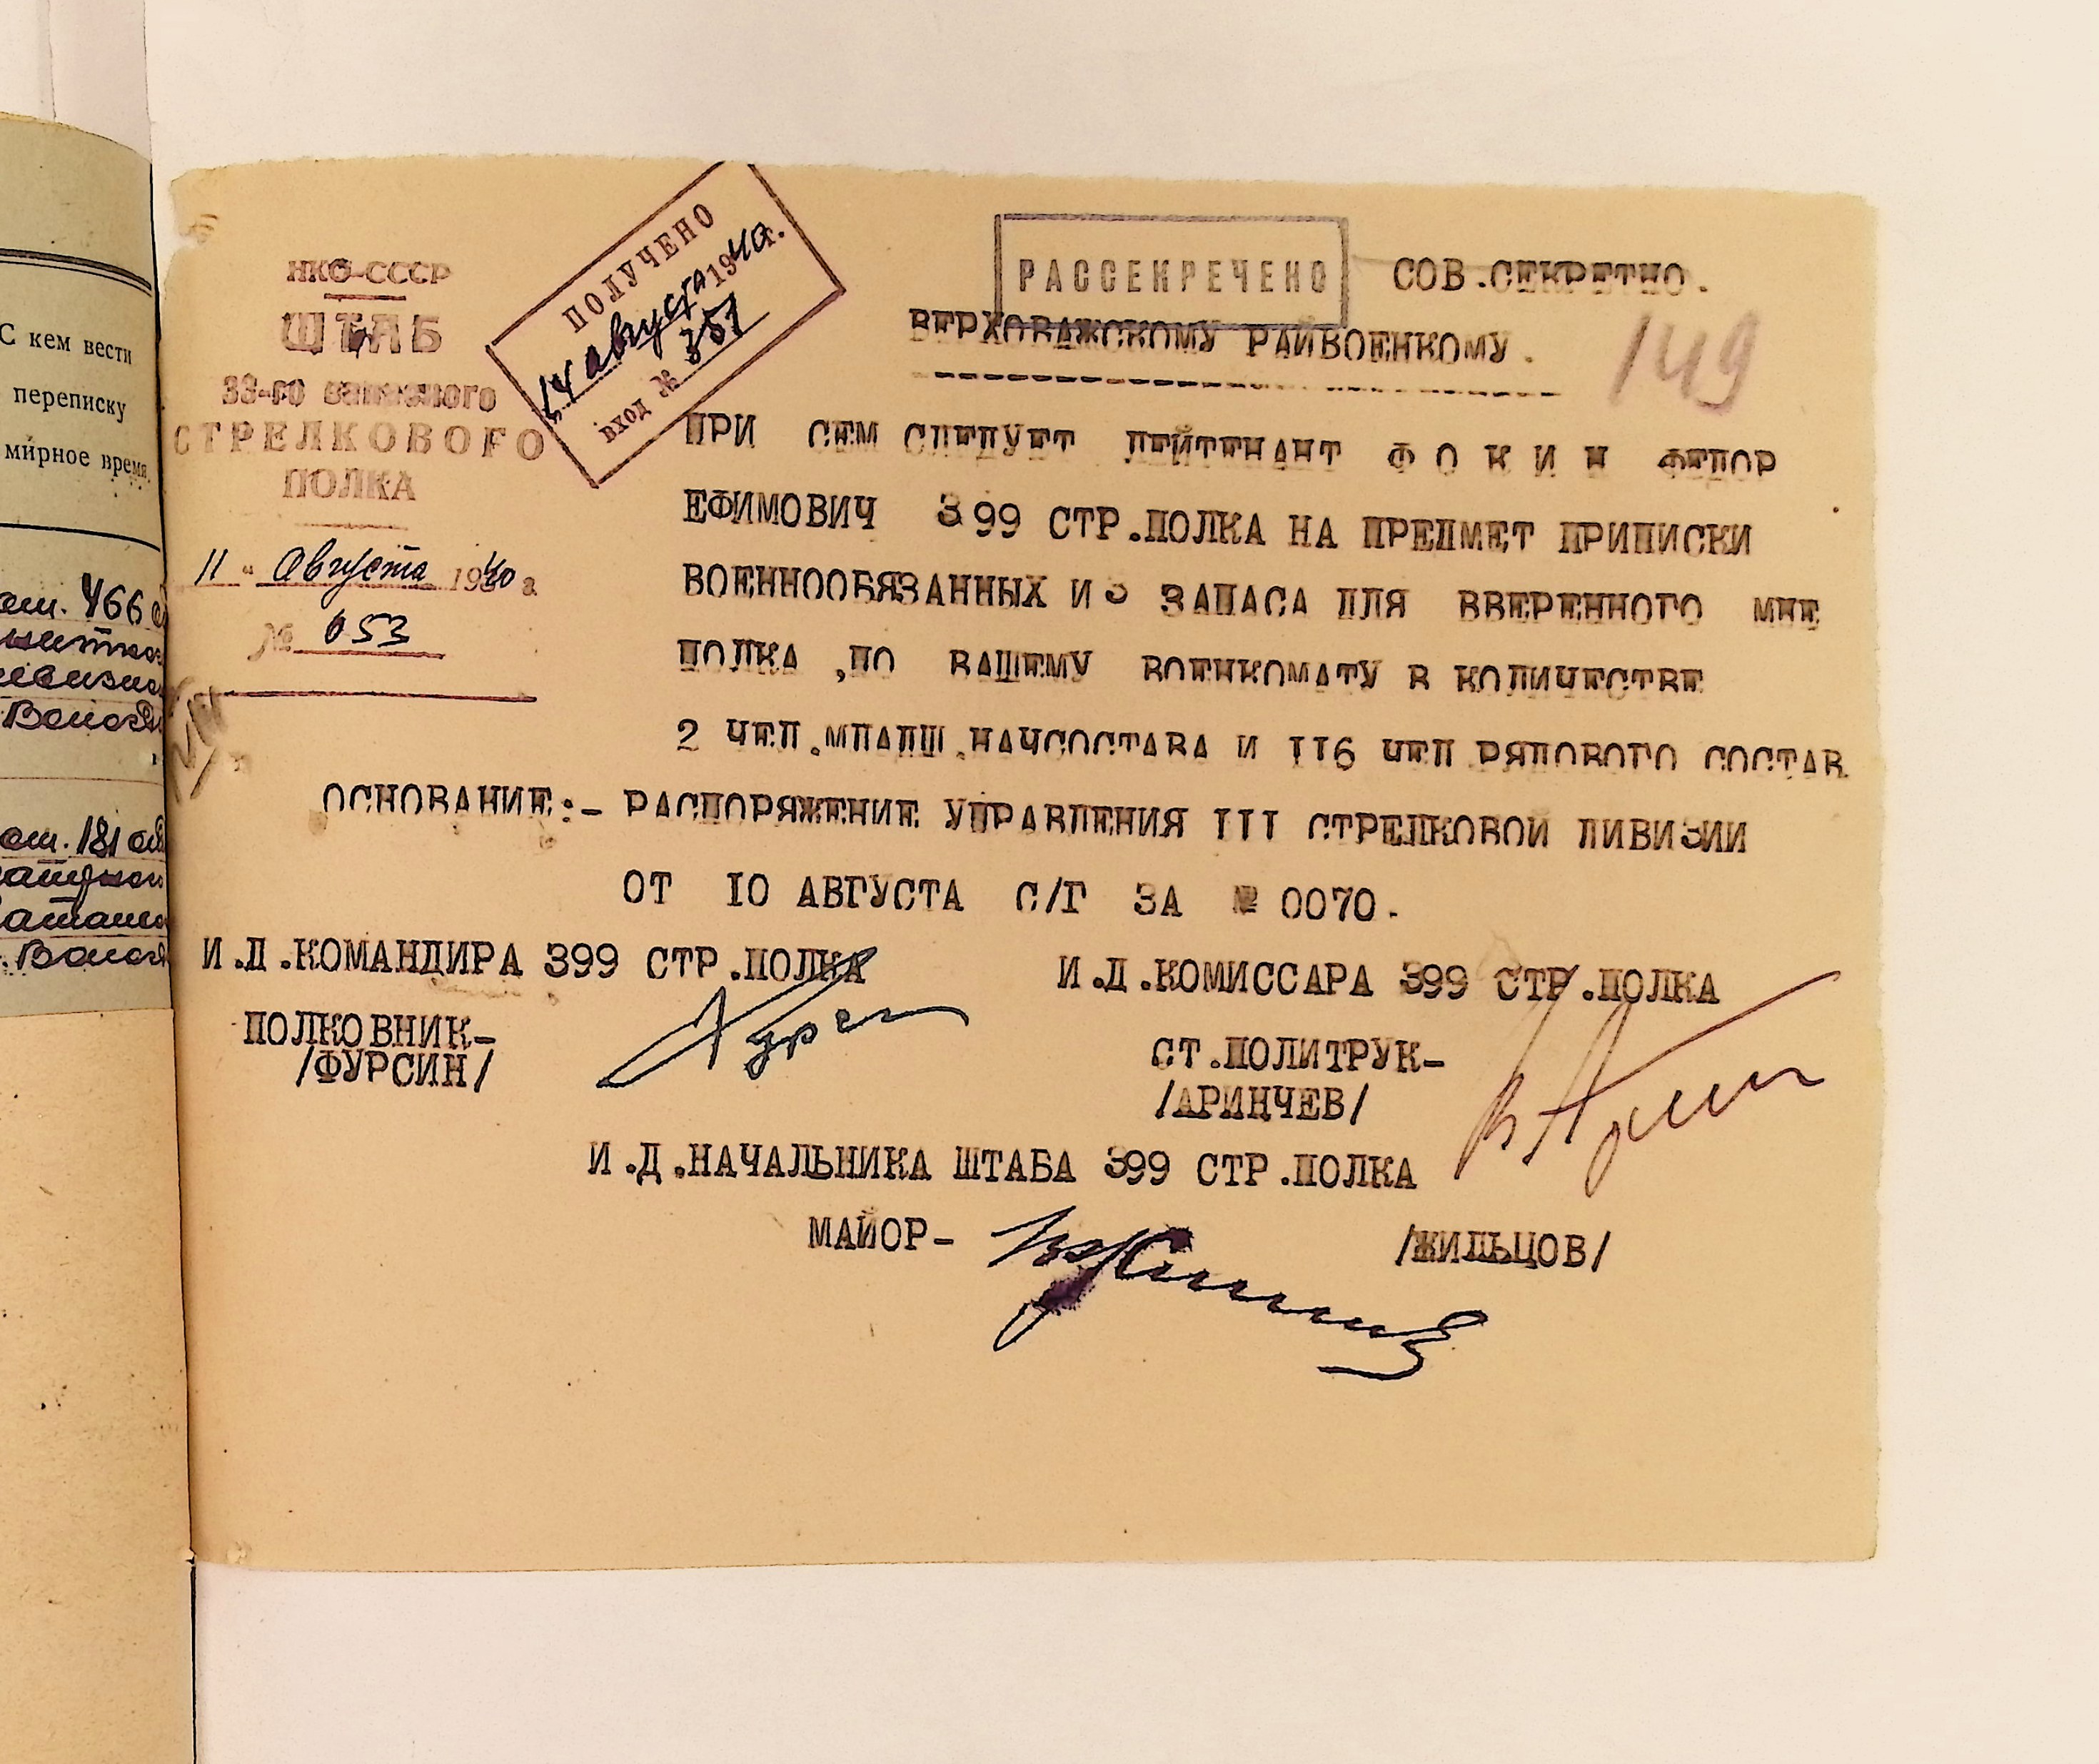 С кем вести
переписку
мирное время
466
181
НКО-СССР
ШТАБ
33-го запасного
СТРЕЛКОВОГО
ПОЛКА
11 " августа 1940 г.
№ 053
ПОЛУЧЕНО
14 августа 1940 г.
вход № 351
РАССЕКРЕЧЕНО
СОВ.СЕКРЕТНО.
ВЕРХОВАЖСКОМУ РАЙВОЕНКОМУ.
149
ПРИ СЕМ СЛЕДУЕТ ЛЕЙТЕНАНТ Ф О К И Н ФЕДОР
ЕФИМОВИЧ 399 СТР.ПОЛКА НА ПРЕДМЕТ ПРИПИСКИ
ВОЕННООБЯЗАННЫХ ИЗ ЗАПАСА ДЛЯ ВВЕРЕННОГО МНЕ
ПОЛКА ,ПО ВАШЕМУ ВОЕНКОМАТУ В КОЛИЧЕСТВЕ
2 ЧЕЛ.МЛАДШ.НАЧСОСТАВА И II6 ЧЕЛ РЯДОВОГО СОСТАВ.
ОСНОВАНИЕ:- РАСПОРЯЖЕНИЕ УПРАВЛЕНИЯ III СТРЕЛКОВОЙ ДИВИЗИИ
ОТ IO АВГУСТА С/Г ЗА № 0070.
И.Д.КОМАНДИРА 399 СТР.ПОЛКА
ПОЛКОВНИК-
/ФУРСИН/
И.Д.КОМИССАРА 399 СТР.ПОЛКА
СТ.ПОЛИТРУК-
/АРИНЧЕВ/
И.Д.НАЧАЛЬНИКА ШТАБА 399 СТР.ПОЛКА
МАЙОР- /ЖИЛЬЦОВ/